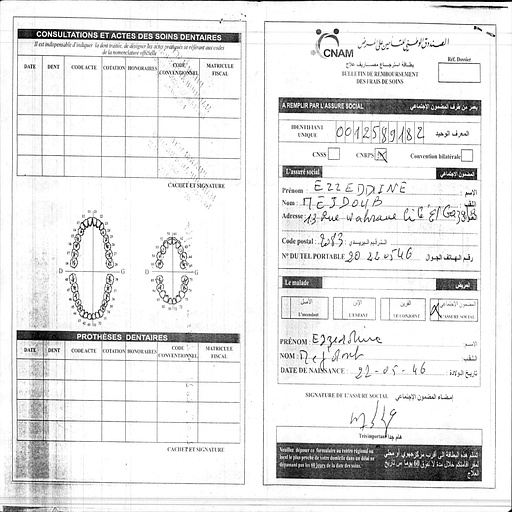 CONSULTATIONS ET ACTES DES SOINS DENTAIRES
Il est indispensable d'indiquer la dent traitée, de désigner les actes pratiqués se référant aux codes
de la nomenclature officielle
DATE DENT CODE ACTE COTATION HONORAIRES CODE CONVENTIONNEL MATRICULE FISCAL
CACHET ET SIGNATURE
D G D G
PROTHÈSES DENTAIRES
DATE DENT CODE ACTE COTATION HONORAIRES CODE CONVENTIONNEL MATRICULE FISCAL
CACHET ET SIGNATURE
الصندوق الوطني للتأمين على المرض
CNAM
بطاقة استرجاع مصاريف علاج
BULLETIN DE REMBOURSEMENT
DES FRAIS DE SOINS
Réf. Dossier
A REMPLIR PAR L'ASSURE SOCIAL يعمر من طرف المضمون الاجتماعي
IDENTIFIANT UNIQUE 0012589182 المعرف الوحيد
CNSS CNRPS X Convention bilatérale
L'assuré social المضمون الاجتماعي
Prénom : EZZEDDINE الإسم :
Nom : MEJDOUB اللقب :
Adresse : 13 Rue Cité El
Code postal : 2083 الترقيم البريدي
N° DU TEL PORTABLE 20 22 05 46 رقم الهاتف الجوال
Le malade المريض
الأصل الإبن القرين المضمون الاجتماعي
L'ascendant L'ENFANT LE CONJOINT X L'ASSURE SOCIAL
PRÉNOM : Ezzeddine الإسم :
NOM : Mejdoub اللقب :
DATE DE NAISSANCE : 22-05-46 تاريخ الولادة :
SIGNATURE DE L'ASSURE SOCIAL إمضاء المضمون الاجتماعي
Très important هام جدا
Veuillez déposer ce formulaire au centre régional ou
local le plus proche de votre domicile dans un délai ne
dépassant pas les 60 jours de la date des soins.